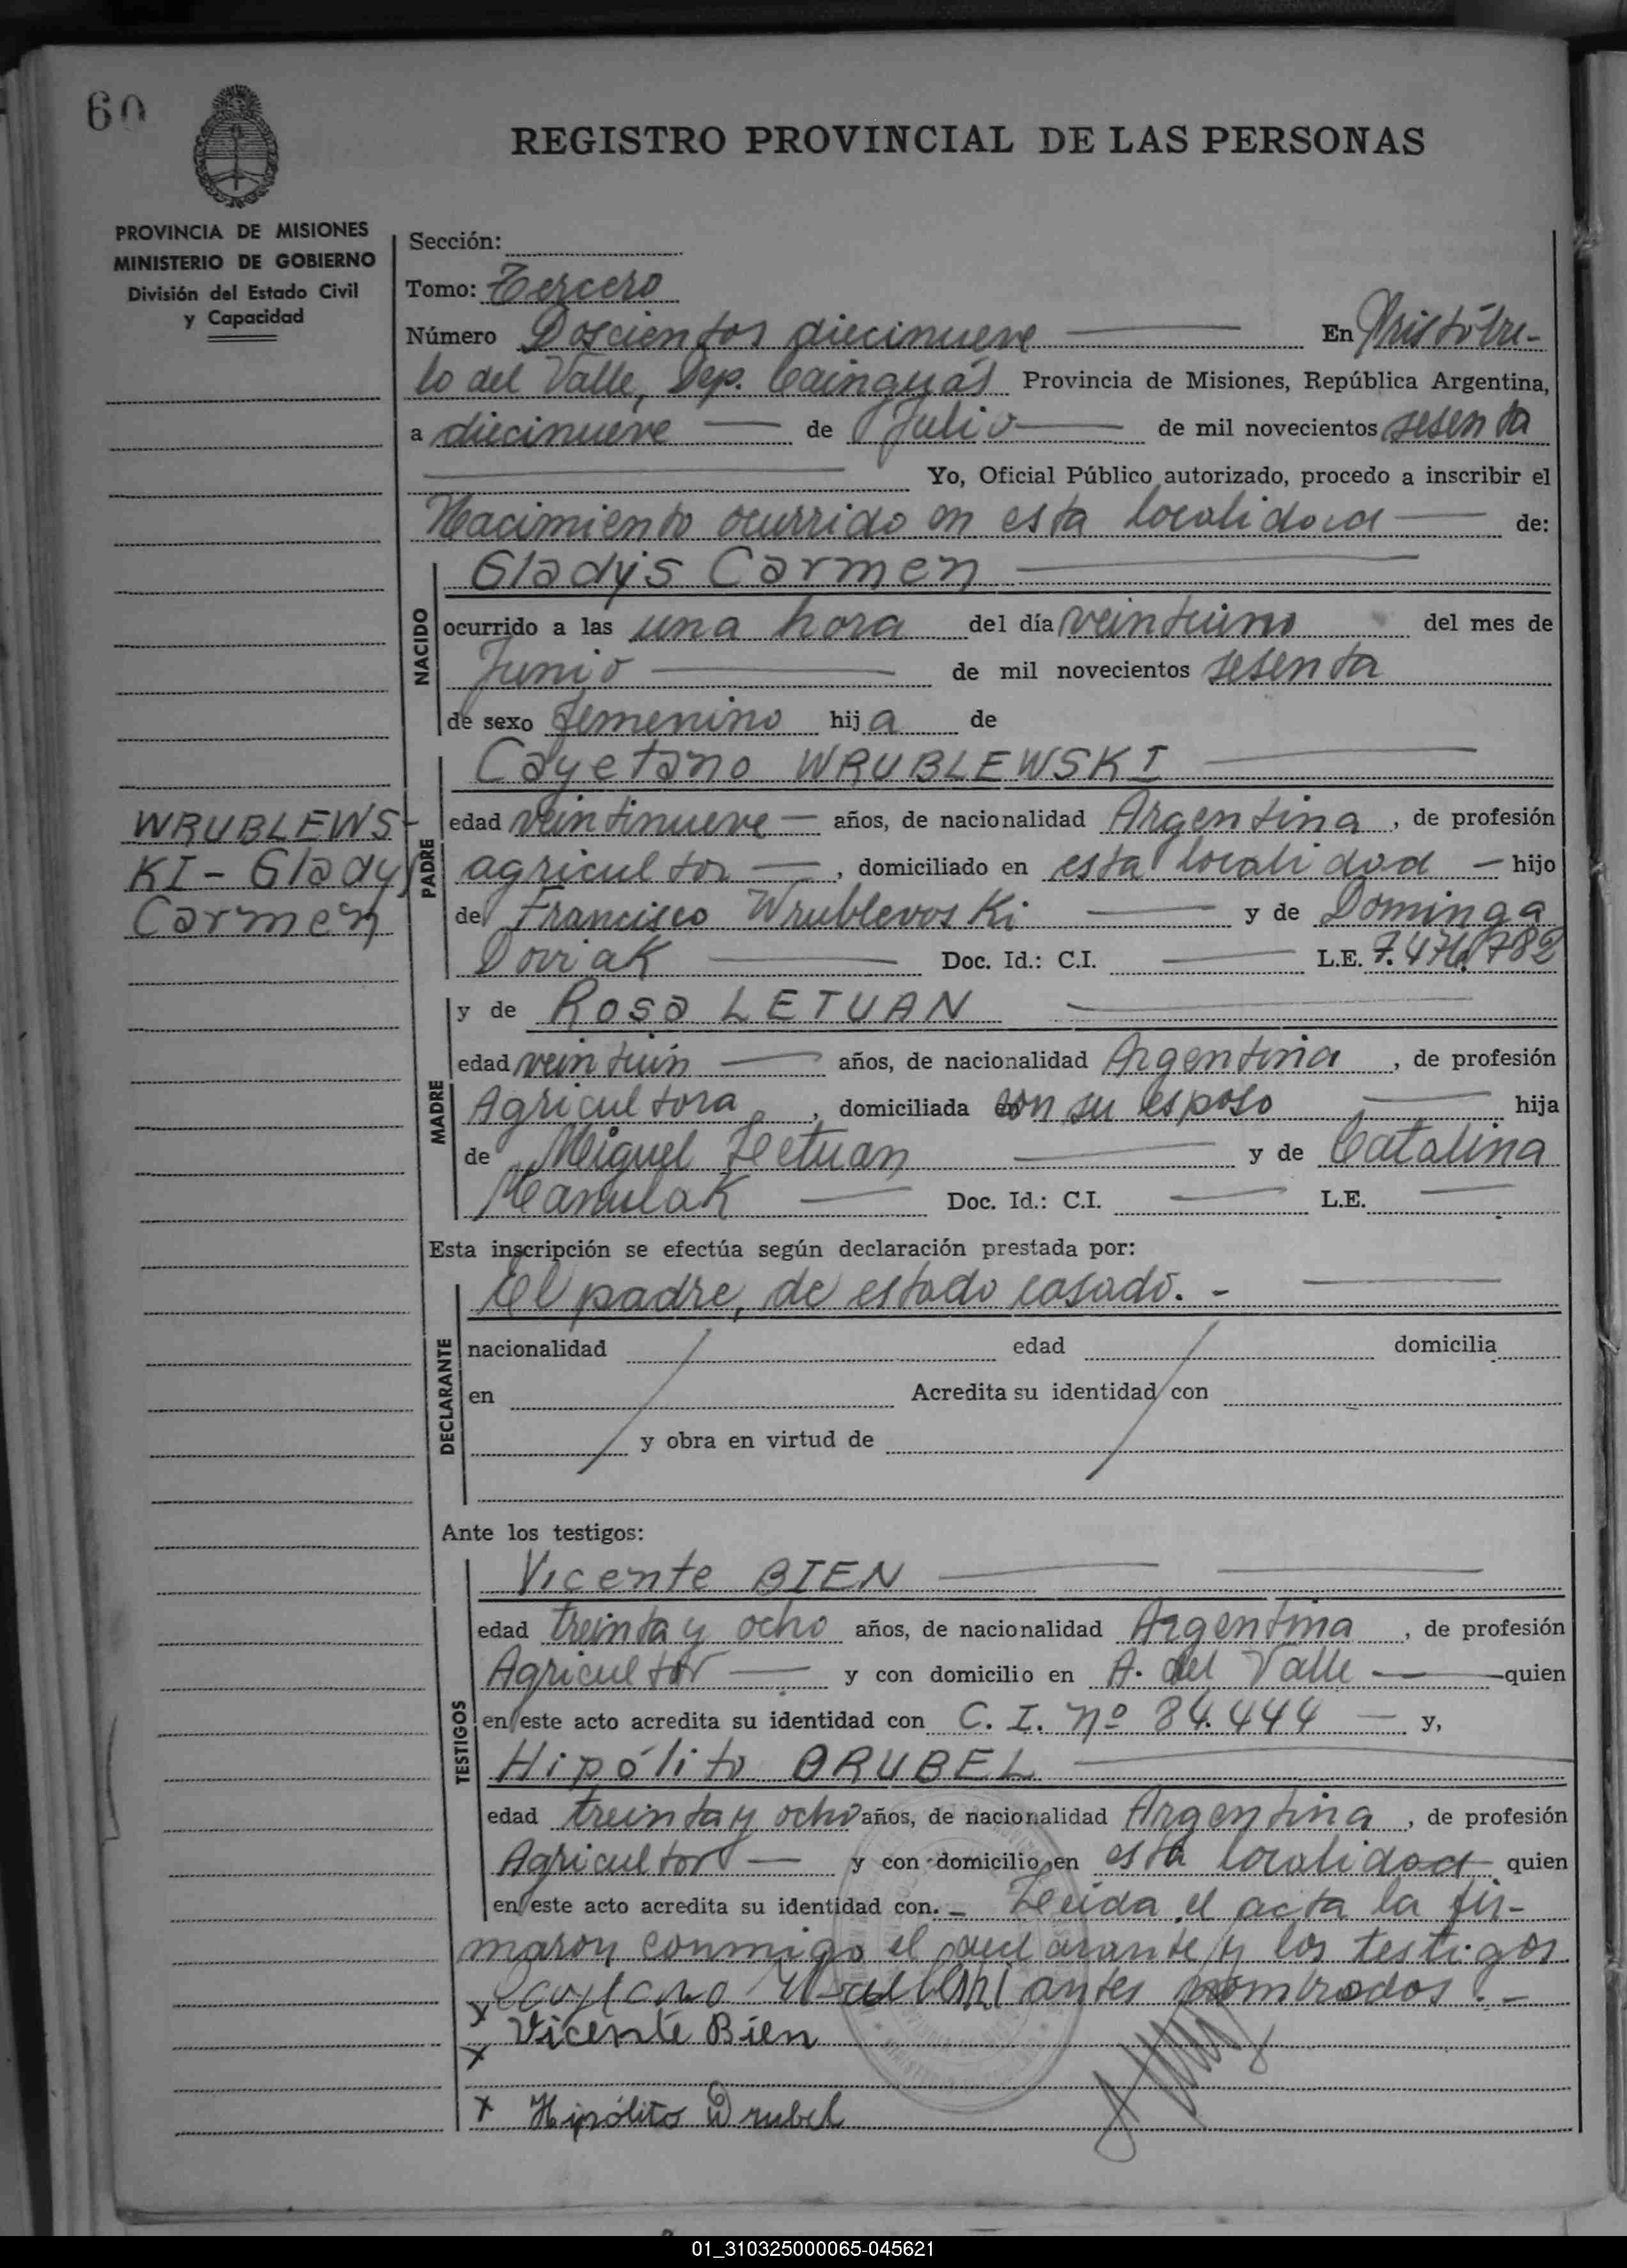 60
REGISTRO PROVINCIAL DE LAS PERSONAS
PROVINCIA DE MISIONES
MINISTERIO DE GOBIERNO
División del Estado Civil
y Capacidad
Sección:
Tomo: Tercero
Número Doscientos diecinueve En Aristóbu-
lo del Valle, Dep. Cainguás Provincia de Misiones, República Argentina,
a diecinueve de Julio de mil novecientos sesenta
Yo, Oficial Público autorizado, procedo a inscribir el
Nacimiento ocurrido en esta localidad de:
Gladys Carmen
NACIDO
ocurrido a las una hora del día veintiuno del mes de
Junio de mil novecientos sesenta
de sexo femenino hija de
Cayetano WRUBLEWSKI
WRUBLEWS-
KI - Gladys
Carmen
PADRE
edad veintinueve años, de nacionalidad Argentina, de profesión
agricultor, domiciliado en esta localidad hijo
de Francisco Wrublevoski y de Dominga
Doviak Doc. Id.: C.I. L.E. 7.476.782
y de Rosa LETUAN
MADRE
edad veintiún años, de nacionalidad Argentina, de profesión
Agricultora, domiciliada con su esposo hija
de Miguel Letuan y de Catalina
Manulak Doc. Id.: C.I. L.E.
Esta inscripción se efectúa según declaración prestada por:
El padre, de estado casado. -
DECLARANTE
nacionalidad edad domicilia
en Acredita su identidad con
y obra en virtud de
Ante los testigos:
Vicente BIEN
TESTIGOS
edad treinta y ocho años, de nacionalidad Argentina, de profesión
Agricultor y con domicilio en A. del Valle quien
en este acto acredita su identidad con C. I. Nº 84.444 y,
Hipólito DRUBEL
edad treinta y ocho años, de nacionalidad Argentina, de profesión
Agricultor y con domicilio en esta localidad quien
en este acto acredita su identidad con. - Leída el acta la fir-
maron conmigo el declarante y los testigos
x Cayetano antes nombrados. -
x Vicente Bien
x Hipólito Drubel
01_310325000065-045621